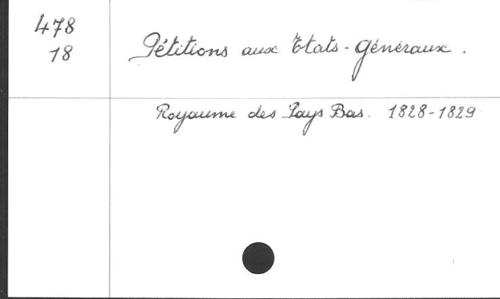 478
18
Pétitions aux Etats-Généraux.
Royaume des Pays Bas. 1828-1829